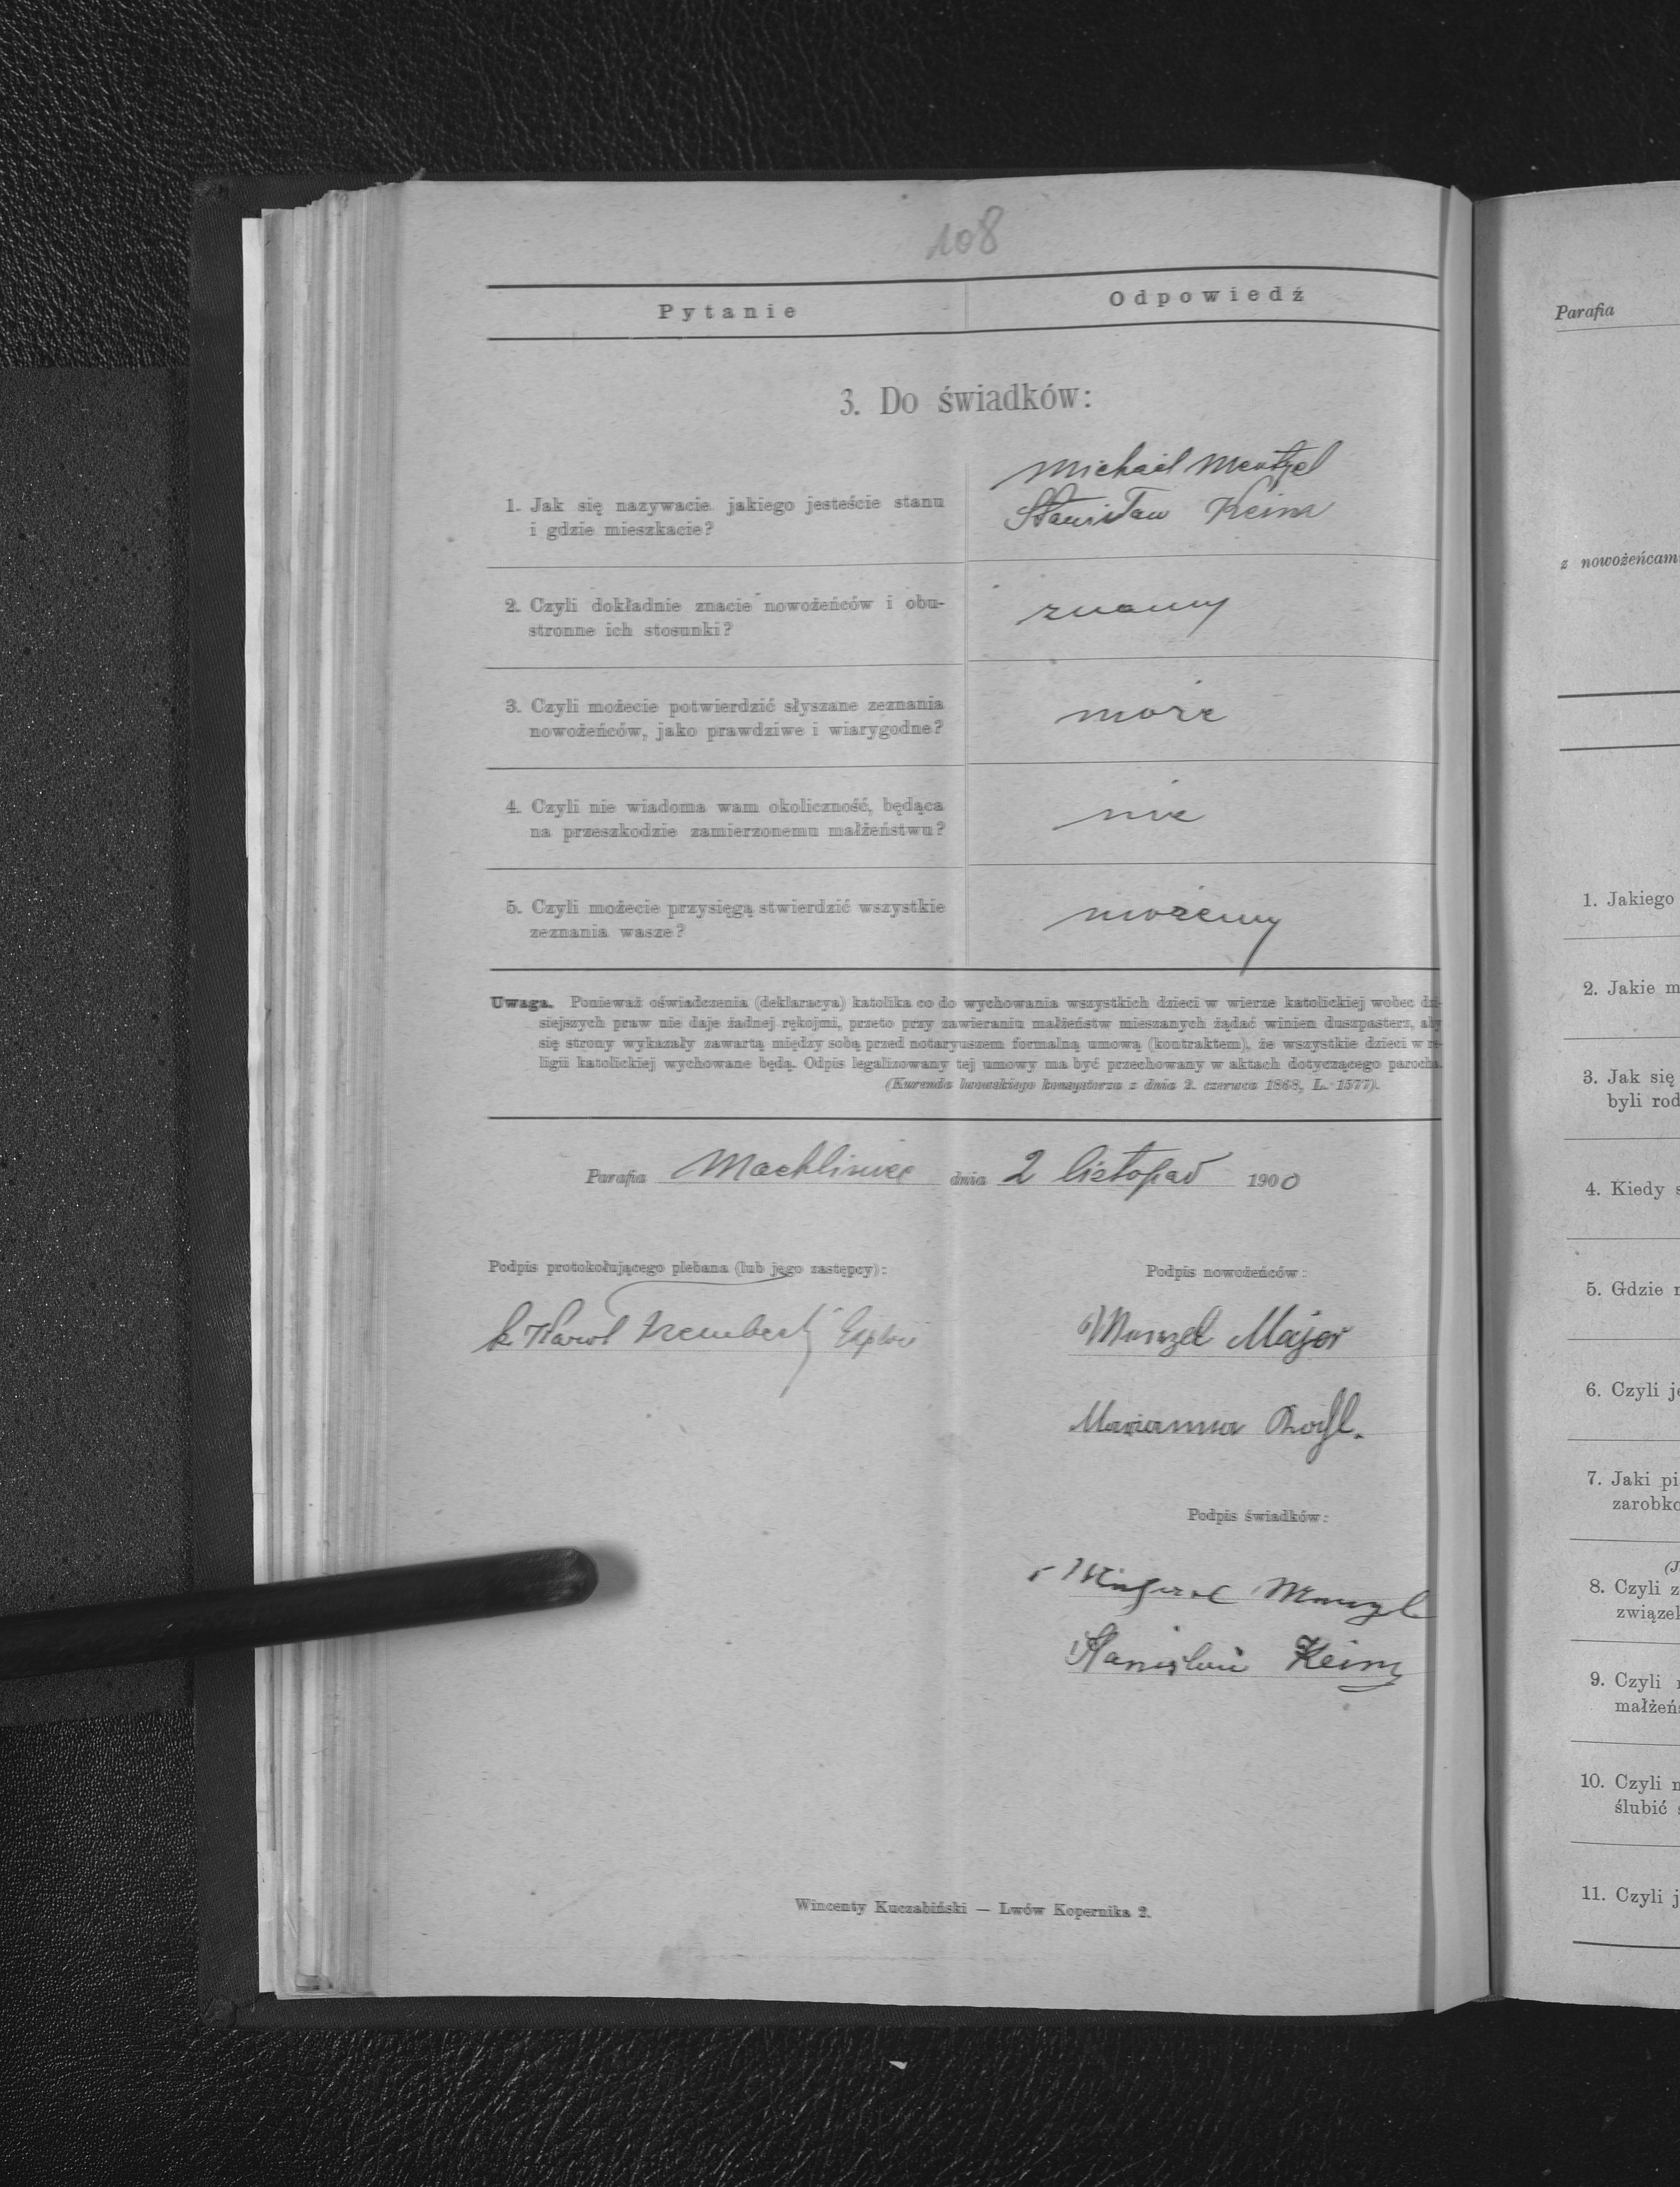 108
Pytanie Odpowiedź
3. Do świadków:
Michael Mentzel
1. Jak się nazywacie jakiego jesteście stanu
Stanisław Keim
i gdzie mieszkacie?
2. Czyli dokładnie znacie nowożeńców i obu-
stronne ich stosunki?
znamy
3. Czyli możecie potwierdzić słyszane zeznania
nowożeńców, jako prawdziwe i wiarygodne?
może
4. Czyli nie wiadoma wam okoliczność, będąca
na przeszkodzie zamierzonemu małżeństwu?
nie
5. Czyli możecie przysięgą stwierdzić wszystkie
zeznania wasze?
możemy
Uwaga. Ponieważ oświadczenia (deklaracya) katolika co do wychowania wszystkich dzieci w wierze katolickiej wobec dzi-
siejszych praw nie daje żadnej rękojmi, przeto przy zawieraniu małżeństw mieszanych żądać winien duszpasterz, aby
się strony wykazały zawartą między sobą przed notaryuszem formalną umową (kontraktem), że wszystkie dzieci w re-
ligii katolickiej wychowane będą. Odpis legalizowany tej umowy ma być przechowany w aktach dotyczącego parocha.
(Kurenda lwowskiego konsystorza z dnia 2. czerwca 1868, L. 1577).
Parafia Machliniec dnia 2 listopad 1900
Podpis protokołującego plebana (lub jego zastępcy):
Podpis nowożeńców:
Karol
Major
Marianna
Podpis świadków:
Keim
Wincenty Kuczabiński — Lwów Kopernika 2.
Parafia
z nowożeńcam
1. Jakiego
2. Jakie m
3. Jak się
byli rod
4. Kiedy s
5. Gdzie
6. Czyli je
7. Jaki pi
zarobko
8. Czyli z
związek
9. Czyli
małżeń
10. Czyli
ślubić
11. Czyli j